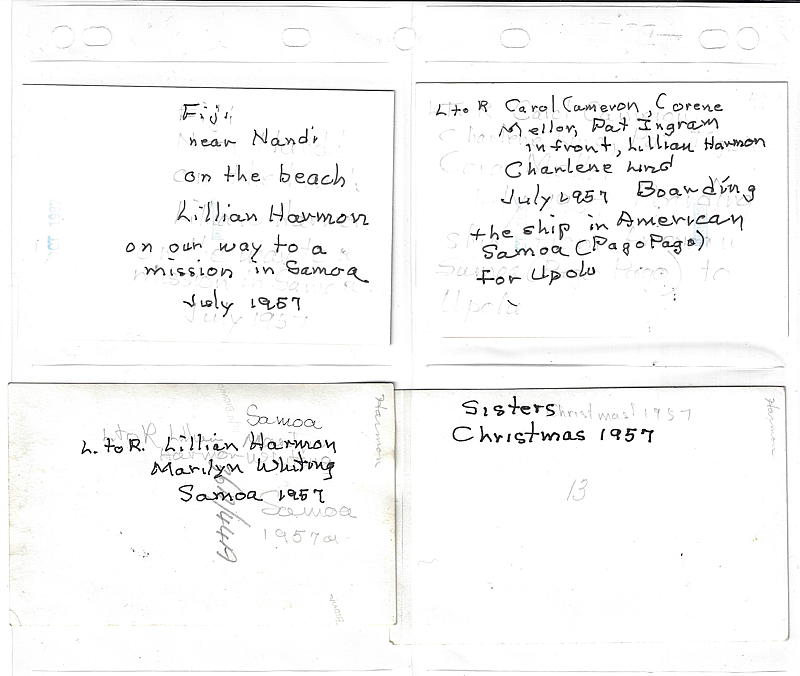 Fiji
near Nandi
on the beach
Lillian Harmon
on our way to a
mission in Samoa
July 1957
L to R Carol Cameron, Corene
Mellor, Pat Ingram
in front, Lillian Harmon
Charlene Lind
July 1957 Boarding
the ship in American
Samoa (Pago Pago)
for Upolu
Samoa
Harmon
L. to R. Lillian Harmon
Marilyn Whiting
Samoa 1957
Samoa
1957
Sisters Christmas 1957
Christmas 1957
Harmon
13